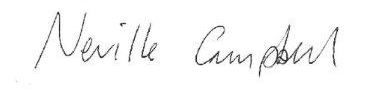 Neville Campbell